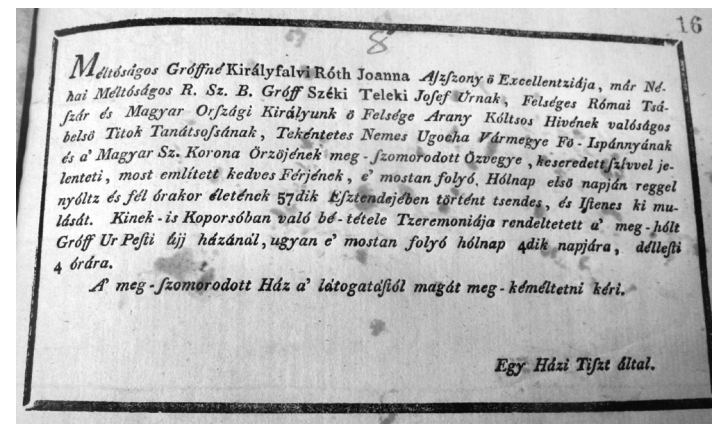 16
8
Méltóságos Gróffné Királyfalvi Róth Joanna Aſzſzony ő Excellentziája, már Né-
hai Méltóságos R. Sz. B. Gróff Széki Teleki Joſef Úrnak, Felséges Római Tsá-
ſzár és Magyar Orſzági Királyunk ő Felsége Arany Kóltsos Hivének valóságos
belső Titok Tanátsoſsának, Tekéntetes Nemes Ugocha Vármegye Fő-Ispánnyának
és a' Magyar Sz. Korona Örzőjének meg-ſzomorodott Özvegye, keseredett ſzívvel je-
lenteti, most említett kedves Férjének, e' mostan folyó Hólnap első napján reggel
nyóltz és fél órakor életének 57dik Eſztendejében történt tsendes, és Iſtenes ki mu-
lását. Kinek-is Koporsóban való bé-tétele Tzeremoniája rendeltetett a' meg-hólt
Gróff Ur Peſti újj házánál, ugyan e' mostan folyó hólnap 4dik napjára, délleſti
4 órára.
A' meg-ſzomorodott Ház a' látogatáſtól magát meg-kéméltetni kéri.
Egy Házi Tiſzt által.